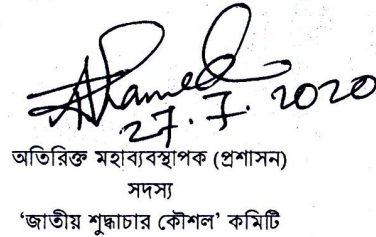 Ahamed
27.7.2020
অতিরিক্ত মহাব্যবস্থাপক (প্রশাসন)
সদস্য
‘জাতীয় শুদ্ধাচার কৌশল’ কমিটি